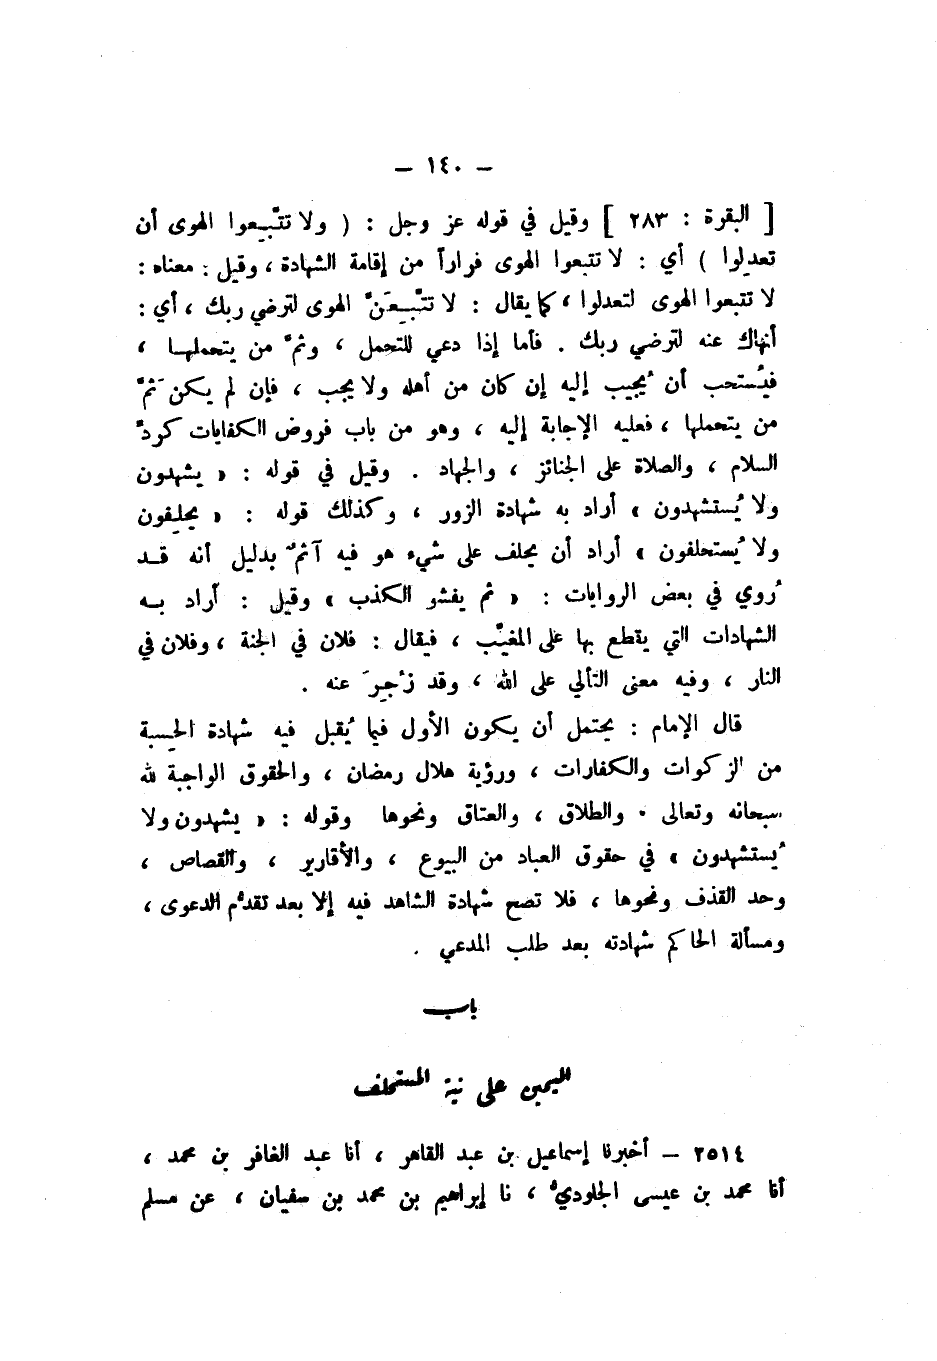 – ١٤٠ –
[ البقرة : ٢٨٣ ] وقيل في قوله عز وجل : ( ولا تتَّبِعوا الهوى أن
تعدلوا ) أي : لا تتبعوا الهوى فراراً من إقامة الشهادة ، وقيل : معناه :
لا تتبعوا الهوى لتعدلوا ، كما يقال : لا تتَّبِعَنَّ الهوى لترضي ربك ، أي :
أنهاك عنه لترضي ربك . فأما إذا دعي للتحمل ، وثمَّ من يتحملها ،
فيُستحب أن يُجيب إليه إن كان من أهله ولا يجب ، فإن لم يكن ثَمَّ
من يتحملها ، فعليه الإجابة إليه ، وهو من باب فروض الكفايات كردِّ
السلام ، والصلاة على الجنائز ، والجهاد . وقيل في قوله : « يشهدون
ولا يُستشهدون » أراد به شهادة الزور ، وكذلك قوله : « يحلِفون
ولا يُستحلفون » أراد أن يحلف على شيء هو فيه آثمٌ بدليل أنه قد
رُوي في بعض الروايات : « ثم يفشو الكذب » وقيل : أراد به
الشهادات التي يقطع بها على المغيَّب ، فيقال : فلان في الجنة ، وفلان في
النار ، وفيه معنى التألي على الله ، وقد زُجِرَ عنه .
قال الإمام : يحتمل أن يكون الأول فيما يُقبل فيه شهادة الحِسبة
من الزكوات والكفارات ، ورؤية هلال رمضان ، والحقوق الواجبة لله
سبحانه وتعالى . والطلاق ، والعتاق ونحوها وقوله : « يشهدون ولا
يُستشهدون » في حقوق العباد من البيوع ، والأقارير ، والقصاص ،
وحد القذف ونحوها ، فلا تصح شهادة الشاهد فيه إلا بعد تقدُّم الدعوى ،
ومسألة الحاكم شهادته بعد طلب المدعي .
باب
اليمين على نية المستحلف
٢٥١٤ – أخبرنا إسماعيل بن عبد القاهر ، أنا عبد الغافر بن محمد ،
أنا محمد بن عيسى الجلوديُّ ، نا إبراهيم بن محمد بن سفيان ، عن مسلم